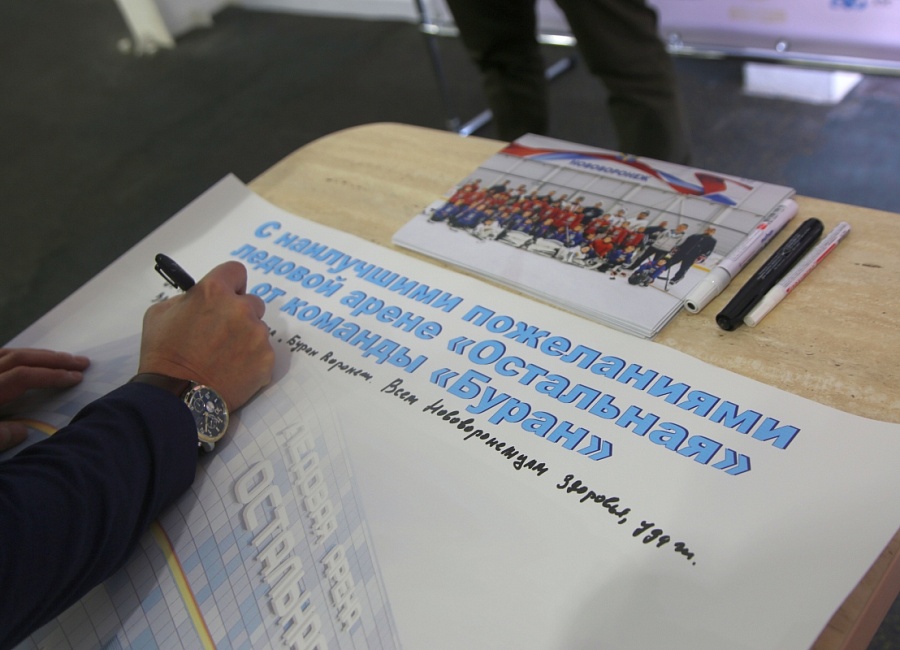 НОВОВОРОНЕЖ
С наилучшими пожеланиями
ледовой арене «Остальная»
от команды «Буран»
Буран Воронеж. Всем Нововоронежцам Здоровья, удачи.
ЛЕДОВАЯ АРЕНА
ОСТАЛЬНАЯ